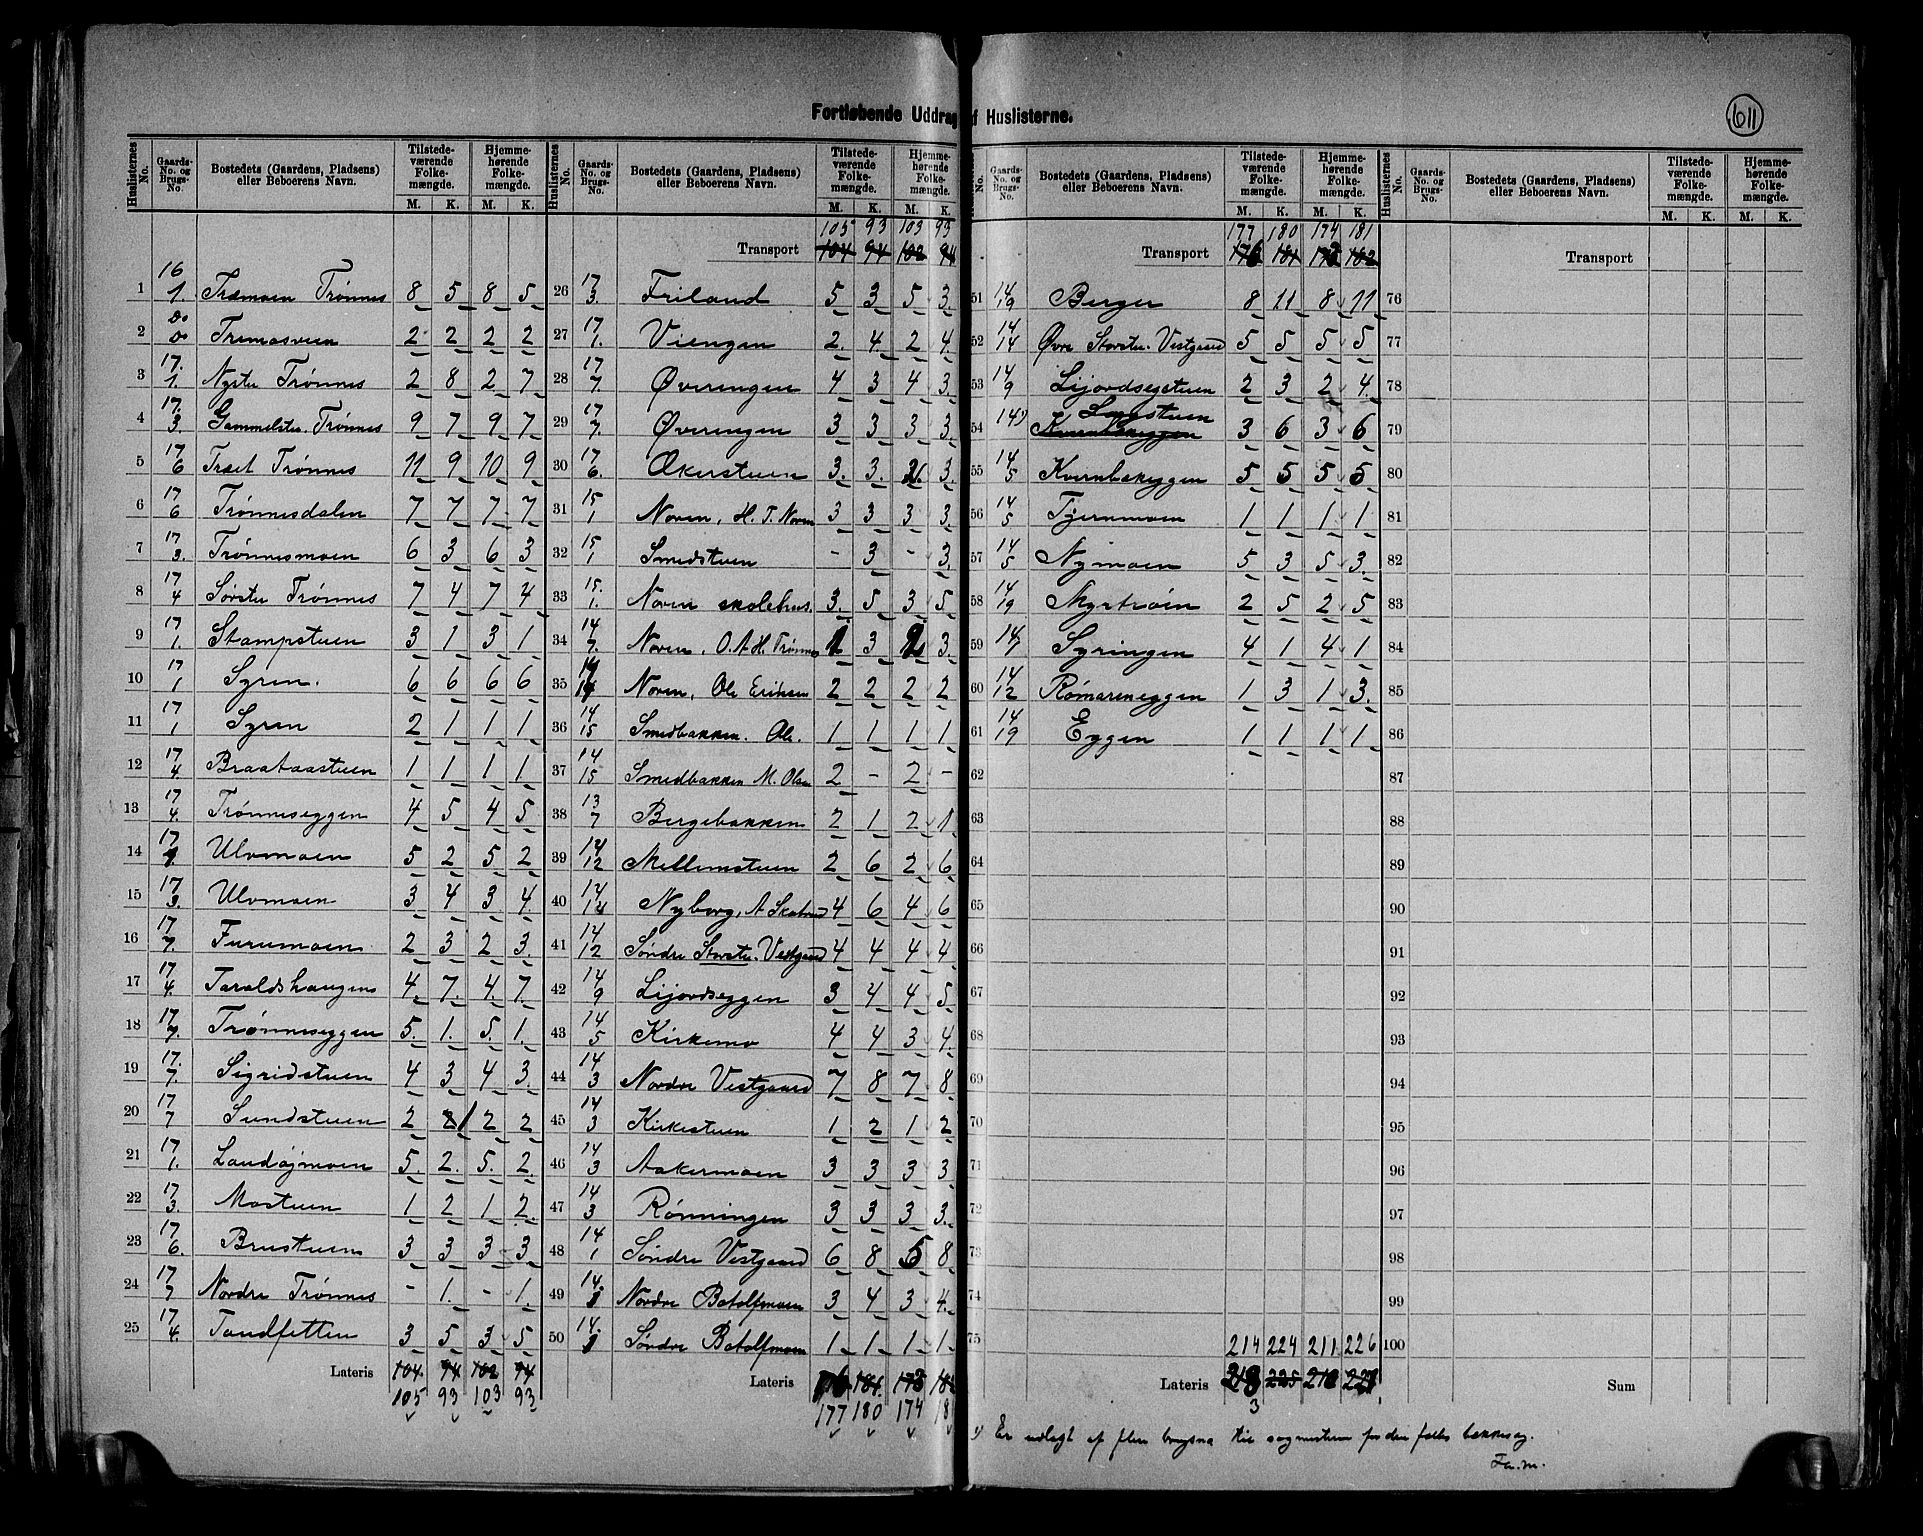 Fortløbende Uddrag af Huslisterne.
611
Huslisternes No. Gaards-No. og Brugs-No. Bostedets (Gaardens, Pladsens) eller Beboerens Navn. Tilstedeværende Folkemængde. M. K. Hjemmehørende Folkemængde. M. K.
1 16/1 Træmoen Trønnes 8 5 8 5
2 do/do Tremosveen 2 2 2 2
3 17/1 Nystu Trønnes 2 8 2 7
4 17/3 Gammelstu Trønnes 9 7 9 7
5 17/6 Træet Trønnes 11 9 10 9
6 17/6 Trønnesdalen 7 7 7 7
7 17/3 Trønnesmoen 6 3 6 3
8 17/4 Sørstu Trønnes 7 4 7 4
9 17/1 Stampstuen 3 1 3 1
10 17/1 Syren. 6 6 6 6
11 17/1 Syren 2 1 1 1
12 17/4 Braataastuen 1 1 1 1
13 17/4 Trønneseggen 4 5 4 5
14 17/1 Ulvmoen 5 2 5 2
15 17/3 Ulvmoen 3 4 3 4
16 17/7 Furumoen 2 3 2 3
17 17/4 Taraldshaugen 4 7 4 7
18 17/7 Trønneseggen 5 1 5 1
19 17/7 Sigridstuen 4 3 4 3
20 17/7 Sundstuen 2 2 1 2 2
21 17/1 Landøjmoen 5 2 5 2
22 17/3 Mostuen 1 2 1 2
23 17/6 Brustuen 3 3 3 3
24 17/7 Nordre Trønnes - 1 - 1
25 17/4 Tandfetten 3 5 3 5
Lateris 104 94 102 94
105 93 103 93
Huslisternes No. Gaards-No. og Brugs-No. Bostedets (Gaardens, Pladsens) eller Beboerens Navn. Tilstedeværende Folkemængde. M. K. Hjemmehørende Folkemængde. M. K.
105 93 103 93
Transport 104 94 102 94
26 17/3 Friland 5 3 5 3
27 17/1 Viengen 2 4 2 4
28 17/7 Øverengen 4 3 4 3
29 17/7 Øverengen 3 3 3 3
30 17/6 Økerstuen 3 3 3
31 15/1 Noren, H. T. Noren 3 3 3 3
32 15/1 Smedstuen - 3 - 3
33 15/1 Noren skolehus. 3 5 3 5
34 14/7 Noren, O. A. H. Trønnes 3 3
35 14 Noren, Ole Eriksen 2 2 2 2
36 14/15 Smedbakken. Ole. 1 1 1 1
37 14/15 Smedbakken M. Olsen 2 - 2 -
38 13/7 Bergebakken 2 1 2 1
39 14/12 Mellemstuen 2 6 2 6
40 14/14 Nyborg, A 4 6 4 6
41 14/12 Søndre Storstu. Vestgaard 4 4 4 4
42 14/9 Lijordseggen 3 4 4 5
43 14/5 Kirkemo 4 4 3 4
44 14/3 Nordre Vestgaard 7 8 7 8
45 14/3 Kirkestuen 1 2 1 2
46 14/3 Aakermoen 3 3 3 3
47 14/3 Rønningen 3 3 3 3
48 14/1 Søndre Vestgaard 6 8 5 8
49 14 Nordre Botolfmoen 3 4 3 4
50 14 Søndre Botolfmoen 1 1 1 1
Lateris 181
177 180 174 181
Huslisternes No. Gaards-No. og Brugs-No. Bostedets (Gaardens, Pladsens) eller Beboerens Navn. Tilstedeværende Folkemængde. M. K. Hjemmehørende Folkemængde. M. K.
177 180 174 181
Transport 176 181 173 182
51 14/19 Berger 8 11 8 11
52 14/14 Øvre Storstu. Vestgaard 5 5 5 5
53 14/9 Lijordsegstuen 2 3 2 4
54 14 1) Kvernbakeggen 3 6 3 6
55 14/5 Kvernbakeggen 5 5 5 5
56 14/5 Tjernmoen 1 1 1 1
57 14/5 Nymoen 5 3 5 3
58 14/19 Myrtrøen 2 5 2 5
59 14/7 Syringen 4 1 4 1
60 14/12 Rømoreneggen 1 3 1 3
61 14/19 Eggen 1 1 1 1
62
63
64
65
66
67
68
69
70
71
72
73
74
75 214 224 211 226
Lateris 225
3
Huslisternes No. Gaards-No. og Brugs-No. Bostedets (Gaardens, Pladsens) eller Beboerens Navn. Tilstedeværende Folkemængde. M. K. Hjemmehørende Folkemængde. M. K.
Transport
76
77
78
79
80
81
82
83
84
85
86
87
88
89
90
91
92
93
94
95
96
97
98
99
100
Sum
1) Er udlagt af flere